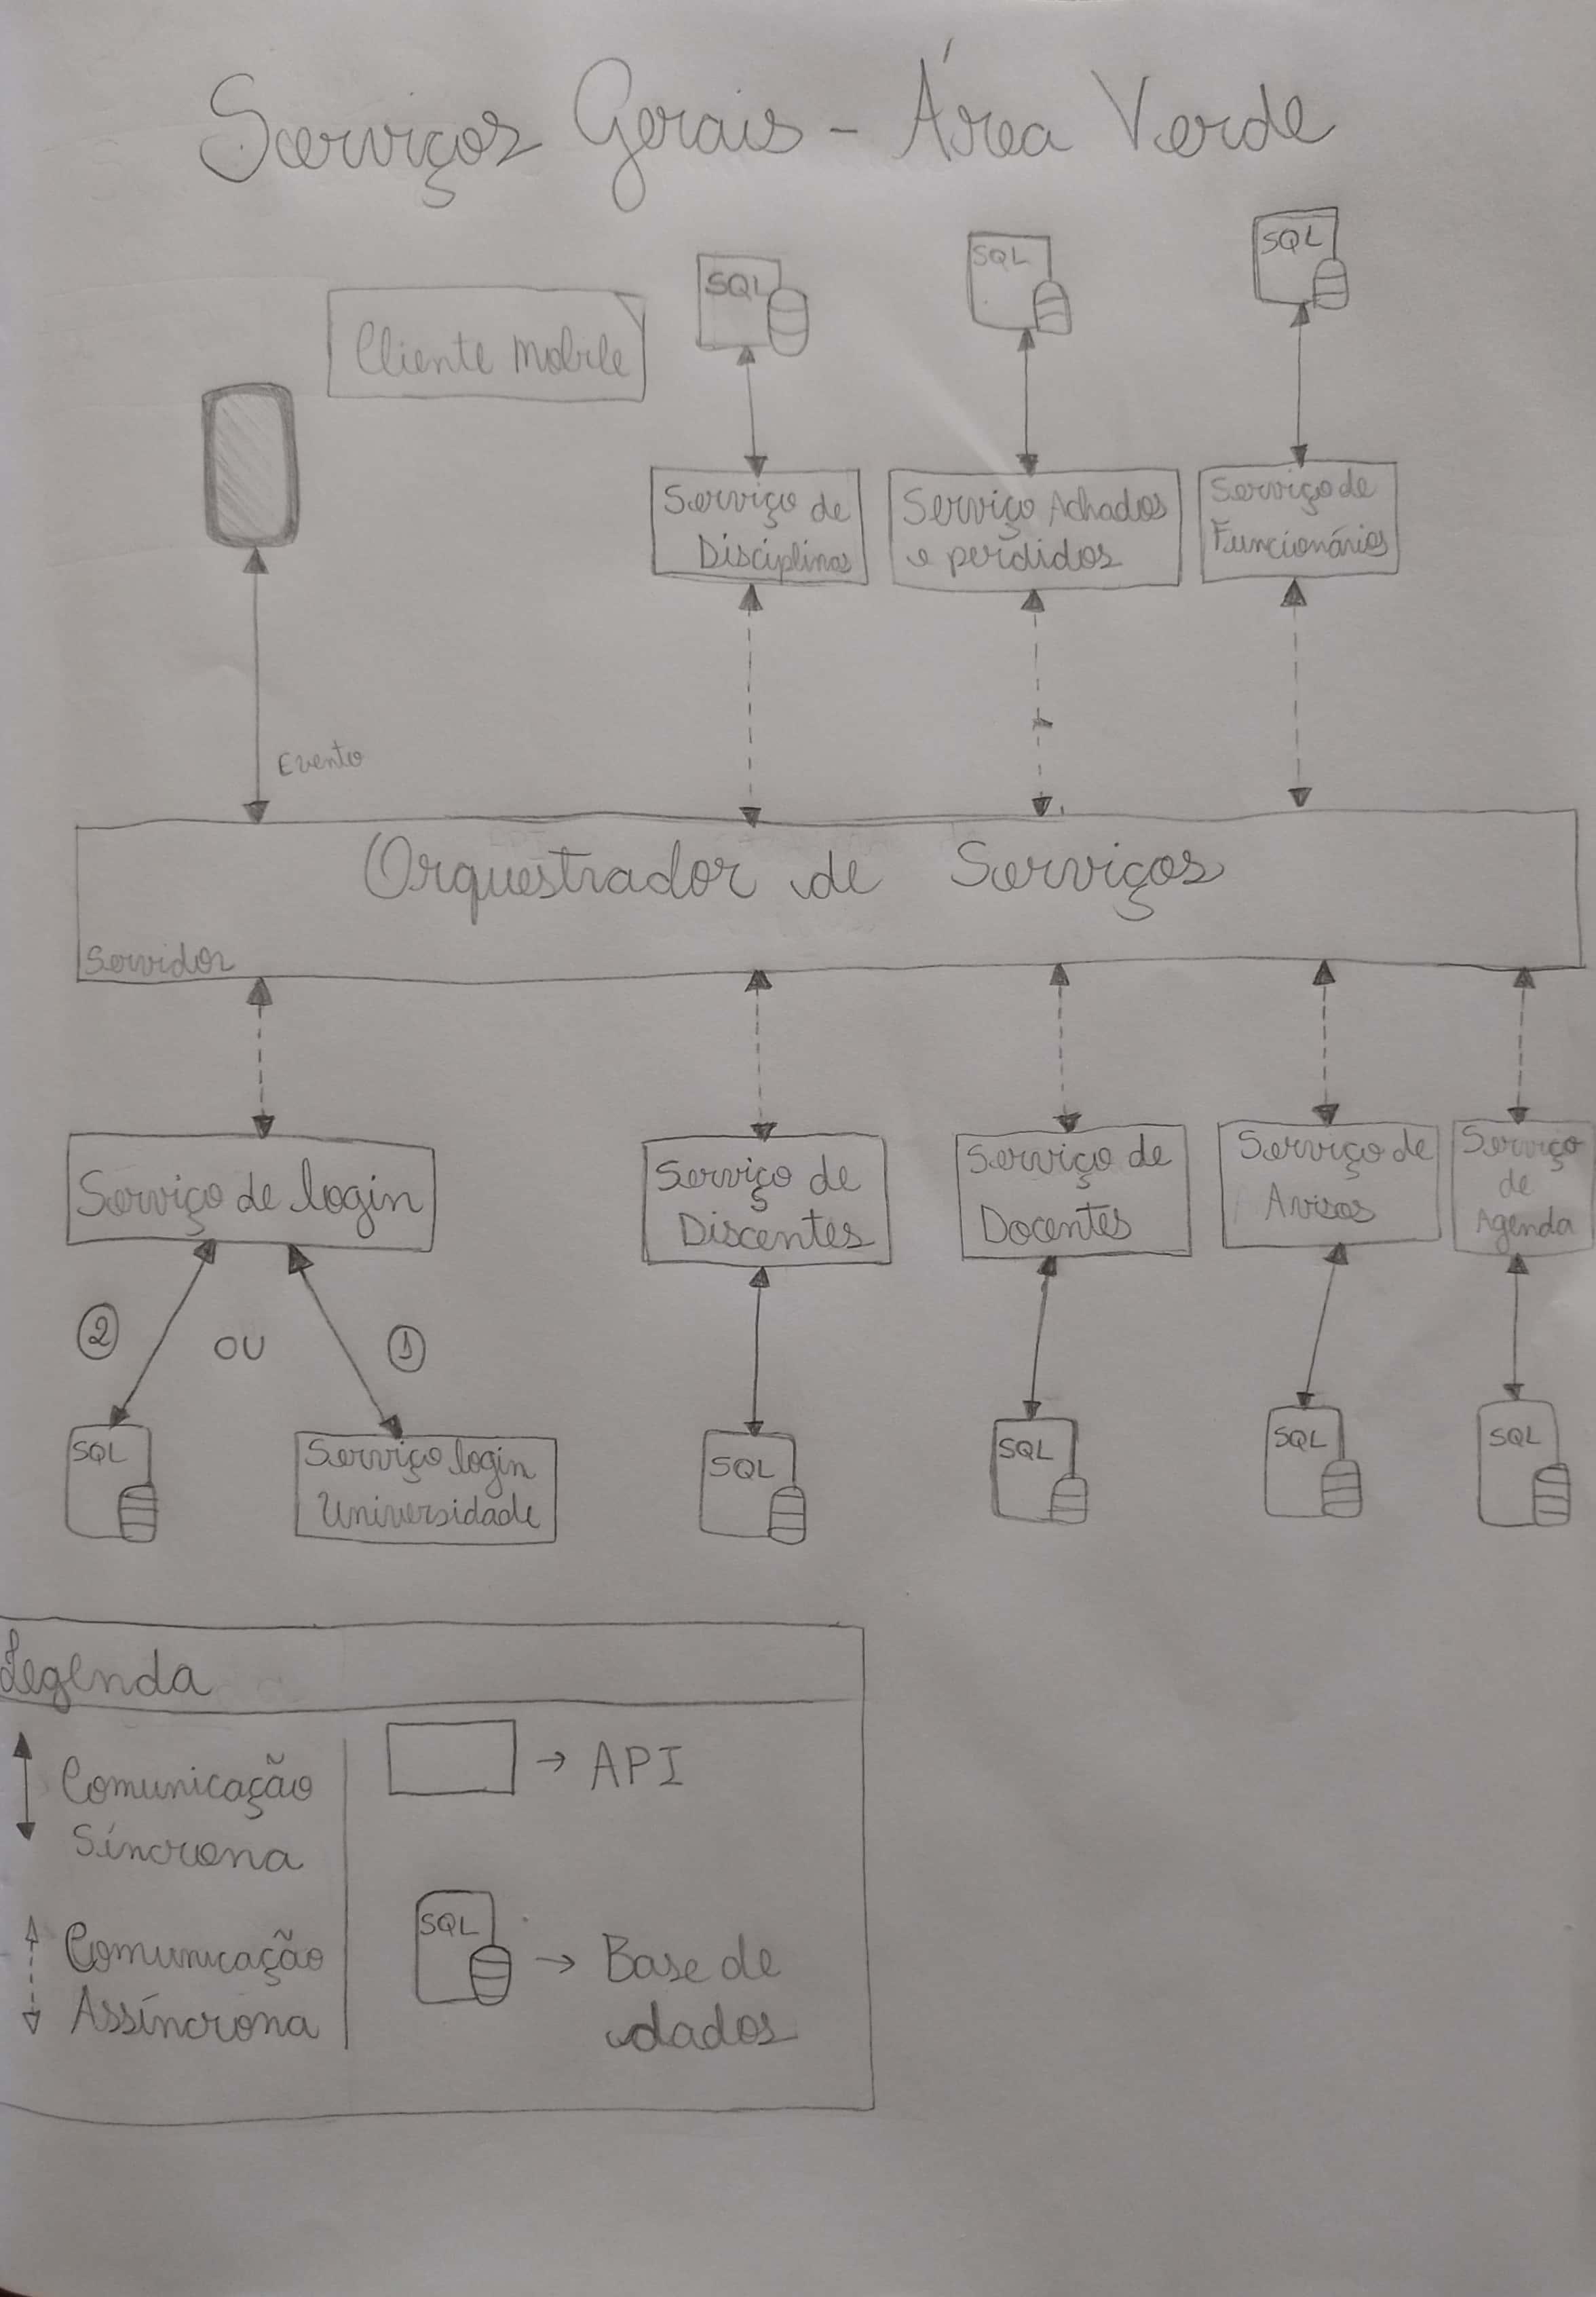 Serviços Gerais - Área Verde
SQL
SQL
SQL
Cliente Mobile
Serviço de
Disciplinas
Serviço Achados
e perdidos
Serviço de
Funcionários
Evento
Orquestrador de Serviços
Servidor
Serviço de login
Serviço de
Discentes
Serviço de
Docentes
Serviço de
Avisos
Serviço
de
Agenda
2
OU
1
SQL
Serviço login
Universidade
SQL
SQL
SQL
SQL
Legenda
Comunicação
Síncrona
→ API
Comunicação
Assíncrona
SQL
→ Base de
dados